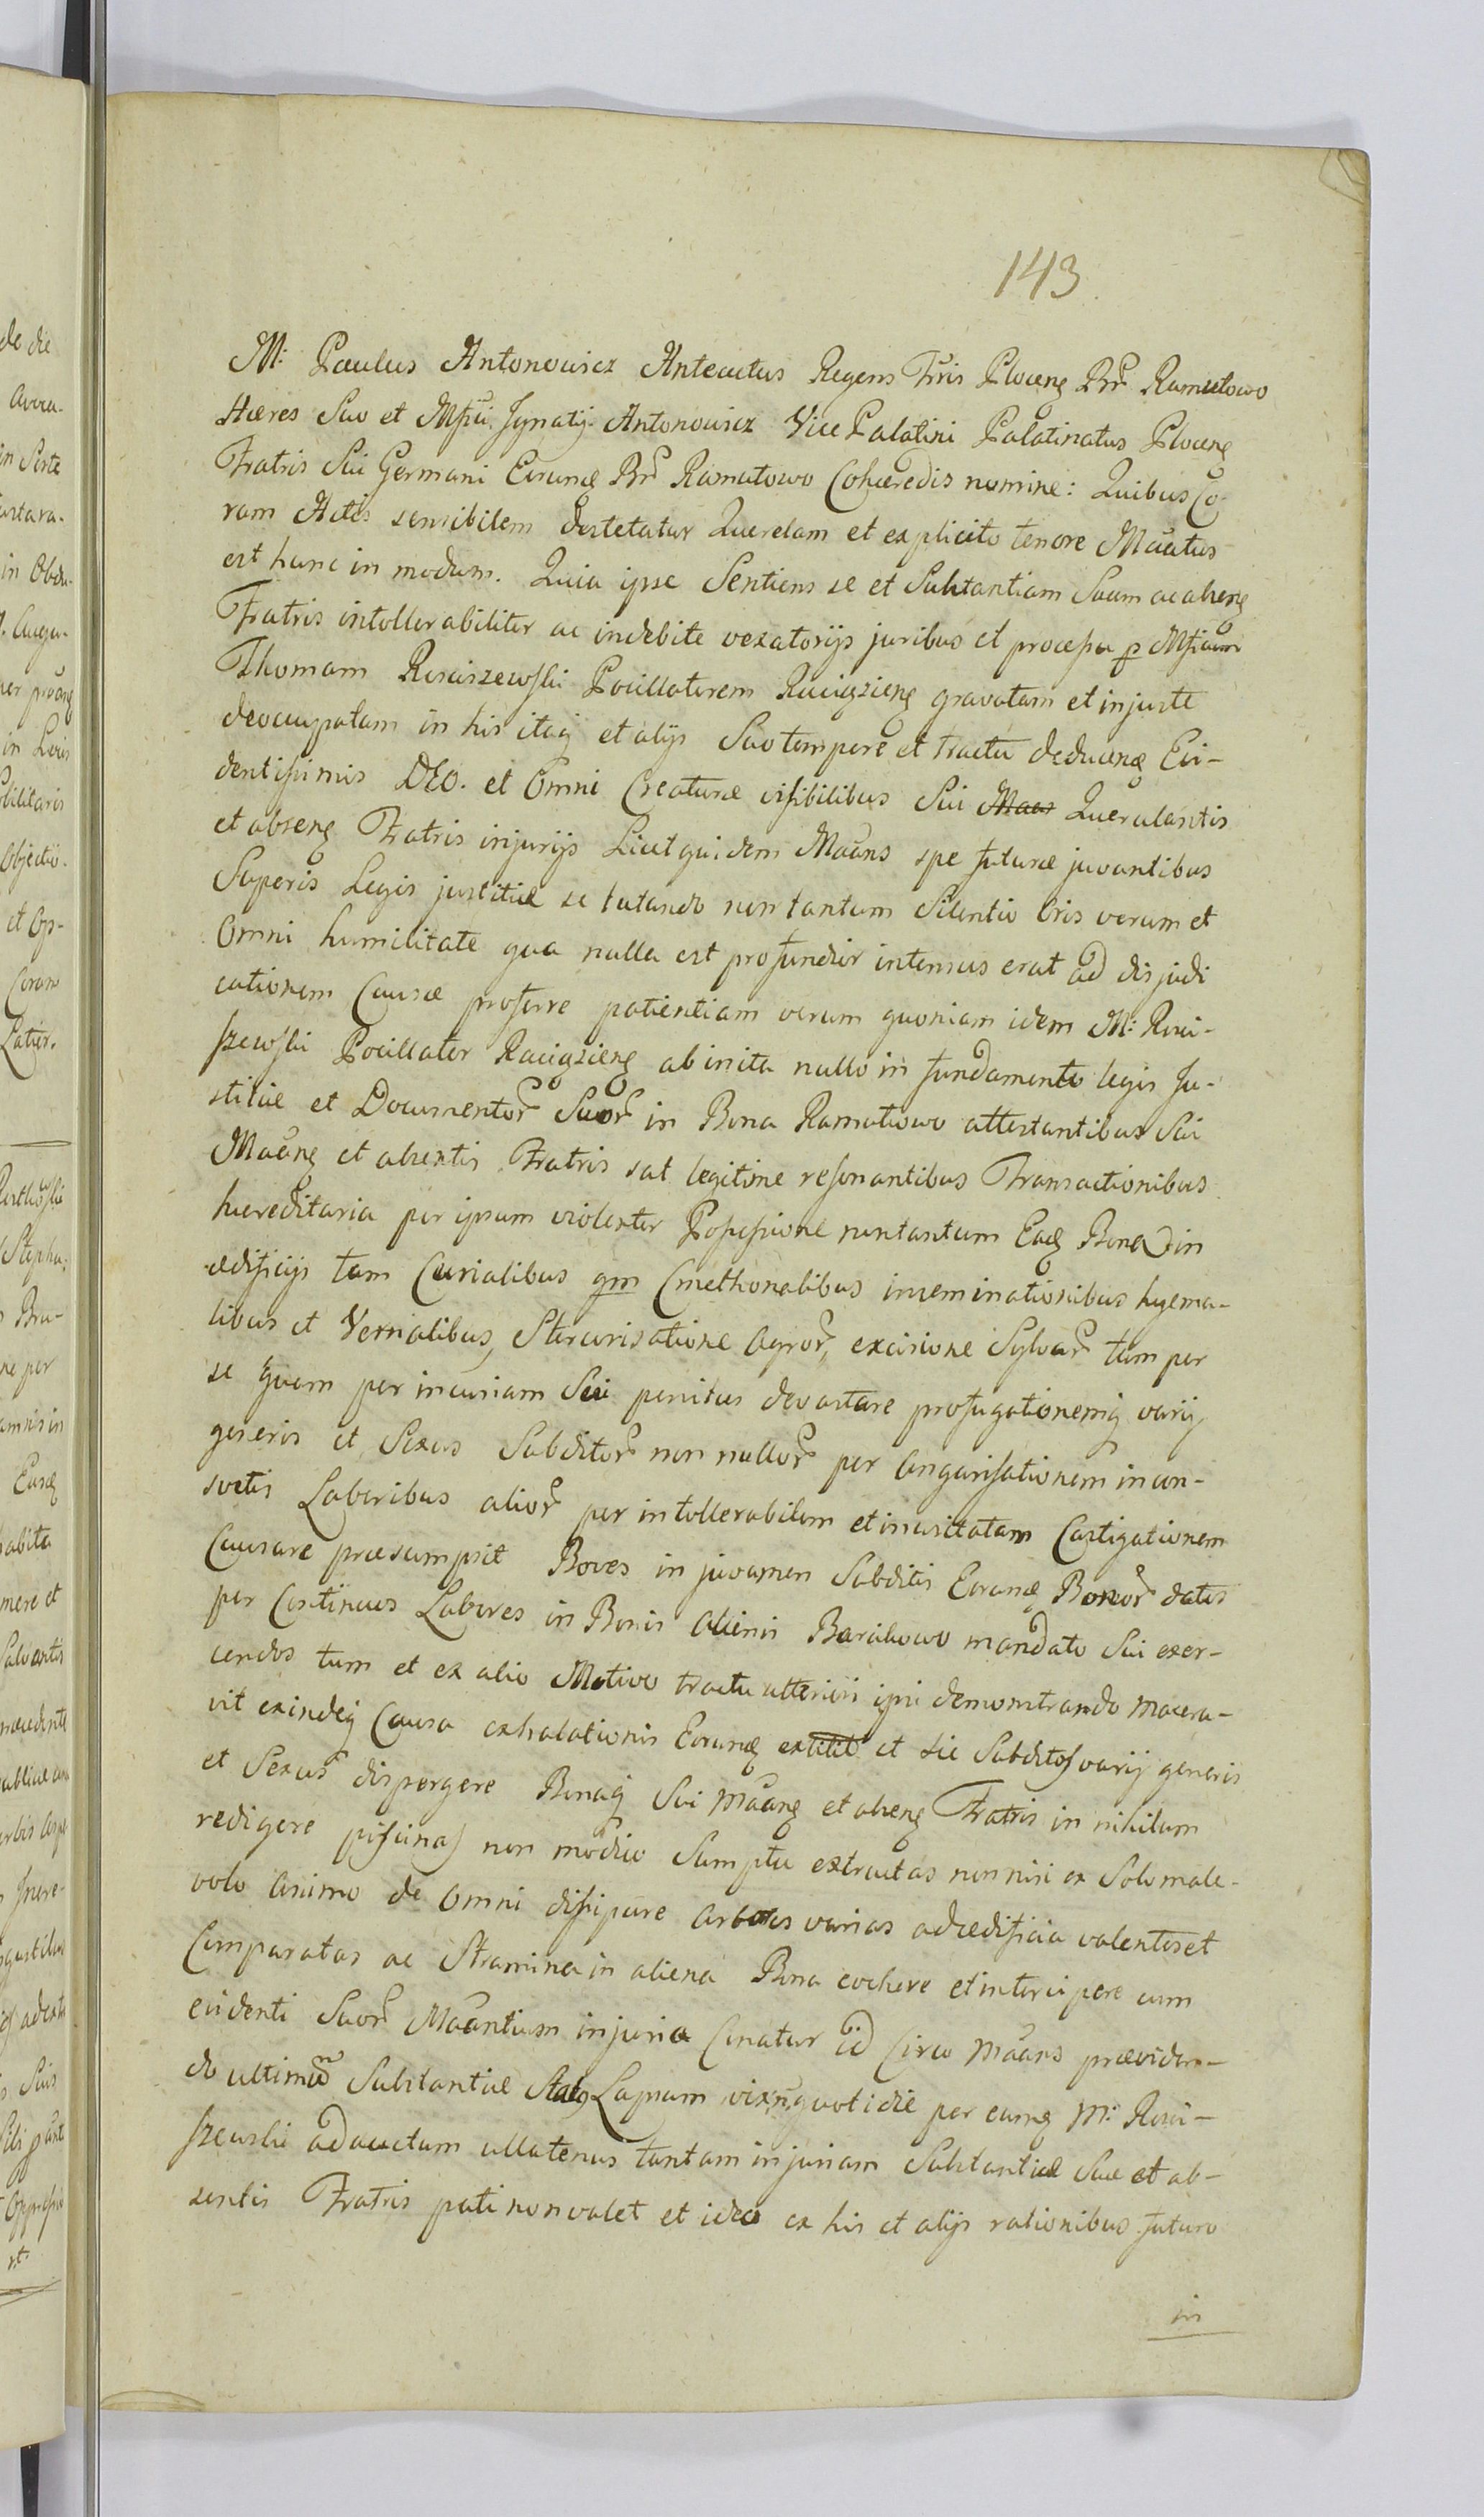 143
M: Paulus Antonowicz Anteactus Regens Tris Plocens Bnr Ramutowo
Hæres Suo et Mfici Ignatij Antonowicz Vice Palatini Palatinatus Plocens
Fratris Sui Germani Eorund Bnr Ramutowo Cohæredis nomine: Quibus Co-
ram Actis sensibilem detestatur Querelam et explicito tenore Mauctus
est hunc in modum. Quia ipse Sentiens se et Substantiam Suam ac absens
Fratris intollerabiliter ac indebite vexatorijs juribus et processu p Mficum
Thomam Rosciszewski Pocillatorem Raciąziens gravatam et injuste
deoccupatam in his itaq et alijs Suo tempore et tractu deducend Evi-
dentissimis DEO. et Omni Creaturæ visibilibus Sui Querulantis
et absens Fratris injurijs Licet quidem Maans spe futuræ juvantibus
Superis Legis justitiæ se tutando non tantum Silentio Oris verum et
Omni humilitate qua nulla est profundior intensus erat ad disjudi
cationem Causæ proferre patientiam verum quoniam idem M: Rosci-
szewski Pocillator Raciąziens ab inita nullo in fundamento legis Ju-
stitiæ et Documentor Suor in Bona Ramutowo attestantibus Sui
Maans et absentis Fratris sat legitime resonantibus Transactionibus
hæreditaria per ipsum violenter Possessione nontantum Ead Bona in
ædificijs tam Curialibus qm Cmethonalibus inseminationibus hyema-
libus et Vernalibus, Stercorisatione Agror, excisione Sylvar tam per
se quam per incuriam Sui penitus devastare profugationemq varij
generis et Sexus Subditor non nullor per Angarisationem incon-
svetis Laboribus alior per intollerabilem et inusitatam Castigationem
Causare præsumpsit Boves in juvamen Subditis Eorund Bonor datos
per Continuos Labores in Bonis Alienis mandato Sui exer-
cendos tum et ex alio Motivo tractu ulteriori ipsi demonstrando macera-
vit exindeq Causa exhalationis Eorund extitit et sic Subditos varij generis
et Sexus dispergere Bonaq Sui Maans et absens Fratris in nihilum
redigere piscinas non modico Sumptu extructas nonnisi ex Solo male-
volo Animo de Omni dissipare Arbores varias ad ædificia valentes et
Comparatas ac Stramina in aliena Bona evehere et intercipere cum
evidenti Suor Maantium injuria Conatur id Circo Maans præviden-
do ultimum Substantiæ Lapsum quotidie per eund M: Rosci-
szewski adauctum ullatenus tantam injuriam Substantiæ Suæ et ab-
sentis Fratris pati non valet et ideo ex his et alijs rationibus futuro
in